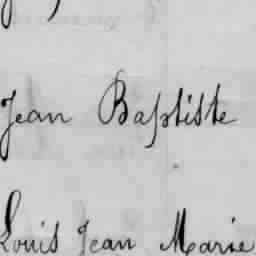 Jean Baptiste
Louis Jean Marie